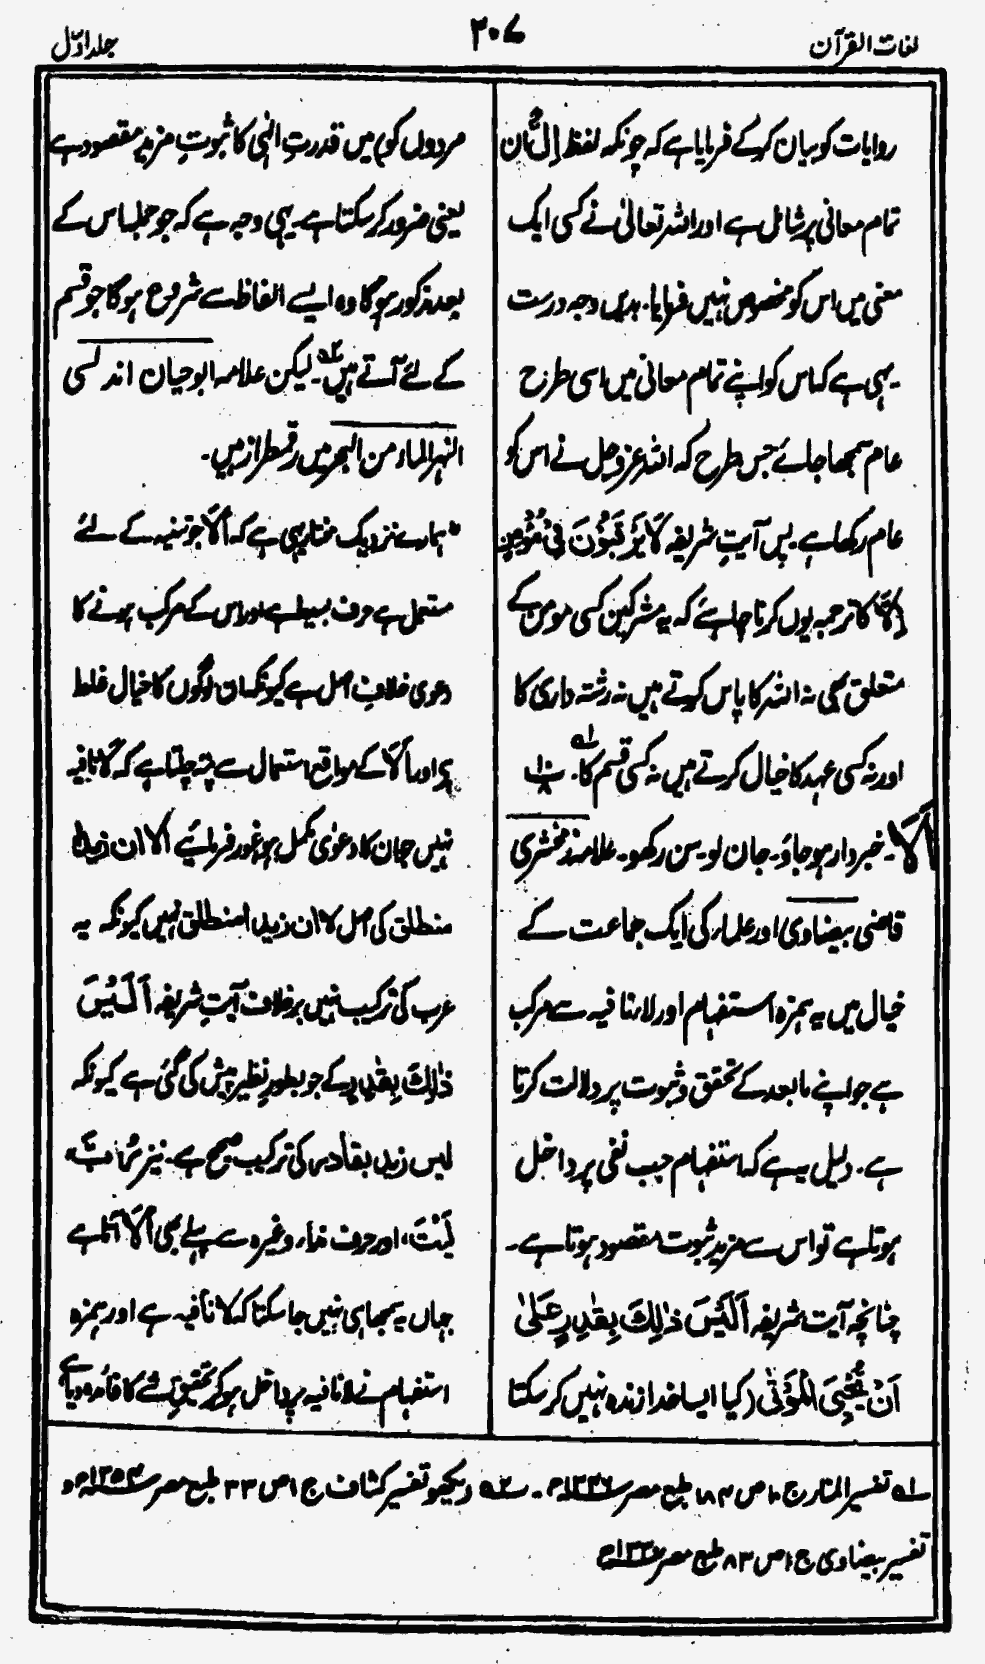 لغات القرآن
۲۰۷
جلد اوّل
روایات کو بیان کرکے فرمایا ہے کہ چونکہ لفظ اِلٌّ ان
تمام معانی پر شامل ہے اور اللہ تعالیٰ نے کسی ایک
معنی میں اس کو مخصوص نہیں فرمایا۔ بدیں وجہ درست
یہی ہے کہ اس کو اپنے تمام معانی میں اسی طرح
عام سمجھا جائے جس طرح کہ اللہ عز وجل نے اس کو
عام رکھا ہے۔ پس آیتِ شریفہ لَا یَرْقُبُوْنَ فِیْ مُؤْمِنٍ
اِلًّا کا ترجمہ یوں کرنا چاہئے کہ یہ مشرکین کسی مومن کے
متعلق بھی نہ اللہ کا پاس کرتے ہیں نہ رشتہ داری کا
اور نہ کسی عہد کا خیال کرتے ہیں نہ کسی قسم کا۔ لہ
اَلَا۔ خبردار ہو جاؤ۔ جان لو۔ سن رکھو۔ علامہ زمخشری
قاضی بیضاوی اور علماء کی ایک جماعت کے
خیال میں یہ ہمزہ استفہام اور لاء نافیہ سے مرکب
ہے جو اپنے مابعد کے تحقق و ثبوت پر دلالت کرتا
ہے۔ دلیل یہ ہے کہ استفہام جب نفی پر داخل
ہوتا ہے تو اس سے مزید ثبوت مقصود ہوتا ہے۔
چنانچہ آیت شریفہ اَلَیْسَ ذٰلِکَ بِقٰدِرٍ عَلٰی
اَنْ یُّحْیِیَ الْمَوْتٰی (کیا ایسا خدا زندہ نہیں کر سکتا
مردوں کو) میں قدرتِ الٰہی کا ثبوتِ مزید مقصود ہے
یعنی ضرور کر سکتا ہے۔ یہی وجہ ہے کہ جو جملہ اس کے
بعد مذکور ہوگا وہ ایسے الفاظ سے شروع ہوگا جو قسم
کے لئے آتے ہیں ۲ہ۔ لیکن علامہ ابوحیان اندلسی
النہر الماد من البحر میں رقمطراز ہیں۔
"ہمارے نزدیک مختار یہی ہے کہ اَلَا جو تنبیہ کے لئے
مستعمل ہے حرف بسیط ہے اور اس کے مرکب ہونے کا
دعوی خلافِ اصل ہے کیونکہ ان لوگوں کا خیال غلط
ہے اور اَلَا کے مواقع استعمال سے پتہ چلتا ہے کہ لا نافیہ
نہیں جہاں کا دعویٰ مکمل ہو غور فرمائیے الا ان زیدا
منطلق کی اصل لا ان زیدا منطلق نہیں کیونکہ یہ
عرب کی ترکیب نہیں برخلاف آیتِ شریفہ اَلَیْسَ
ذٰلِکَ بِقٰدِرٍ کے جو بطور نظیر پیش کی گئی ہے کیونکہ
لیس زید بقادر کی ترکیب صحیح ہے۔ نیز رُبَّ،
لَیْتَ، اور حرف نداء وغیرہ سے پہلے بھی اَلَا آتا ہے
جہاں یہ سمجھا ہی نہیں جا سکتا کہ لا نافیہ ہے اور ہمزہ
استفہام نے لا نافیہ پر داخل ہوکر تحقیقِ شے کا فائدہ دیا ہے
۱ہ تفسیر المنار ج ۱۰ ص ۱۸۴ طبع مصر ۔ ۲ہ دیکھو تفسیر کشاف ج ۱ ص ۳۳ طبع مصر ۱۳۵۴ھ و
تفسیر بیضاوی ج ۱ ص ۸۳ طبع مصر